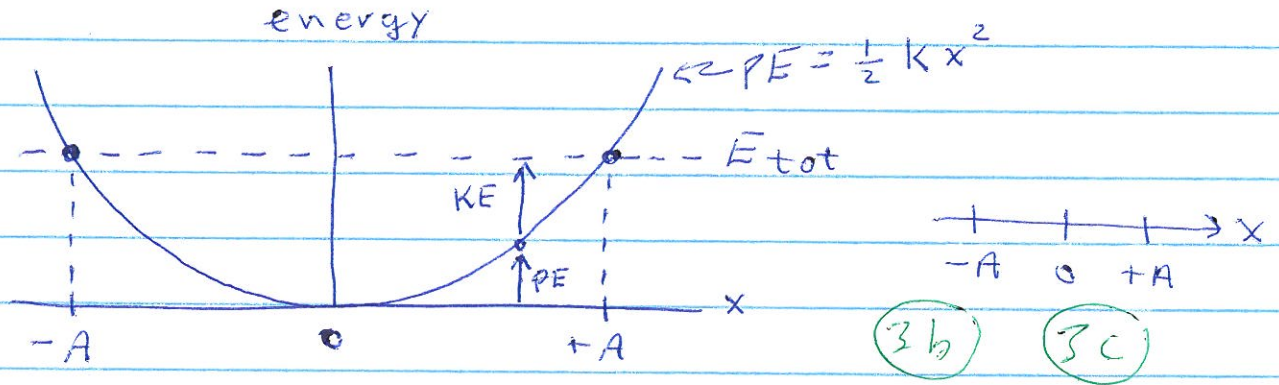 energy
← PE = ½ k x²
E tot
KE
PE
x
-A
0
+A
x
-A
0
+A
3b
3c